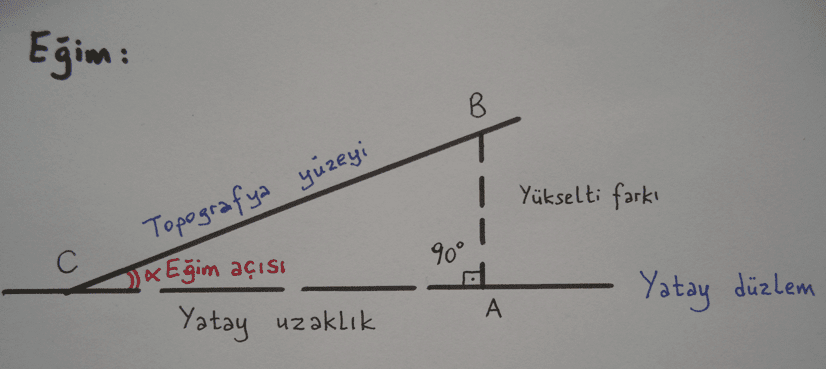 Eğim:
B
Topografya yüzeyi
Yükselti farkı
90°
C
α Eğim açısı
Yatay düzlem
A
Yatay uzaklık